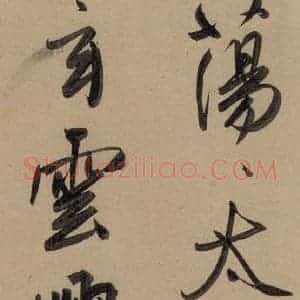 蕩、太
雲
Shufaziliao.COM